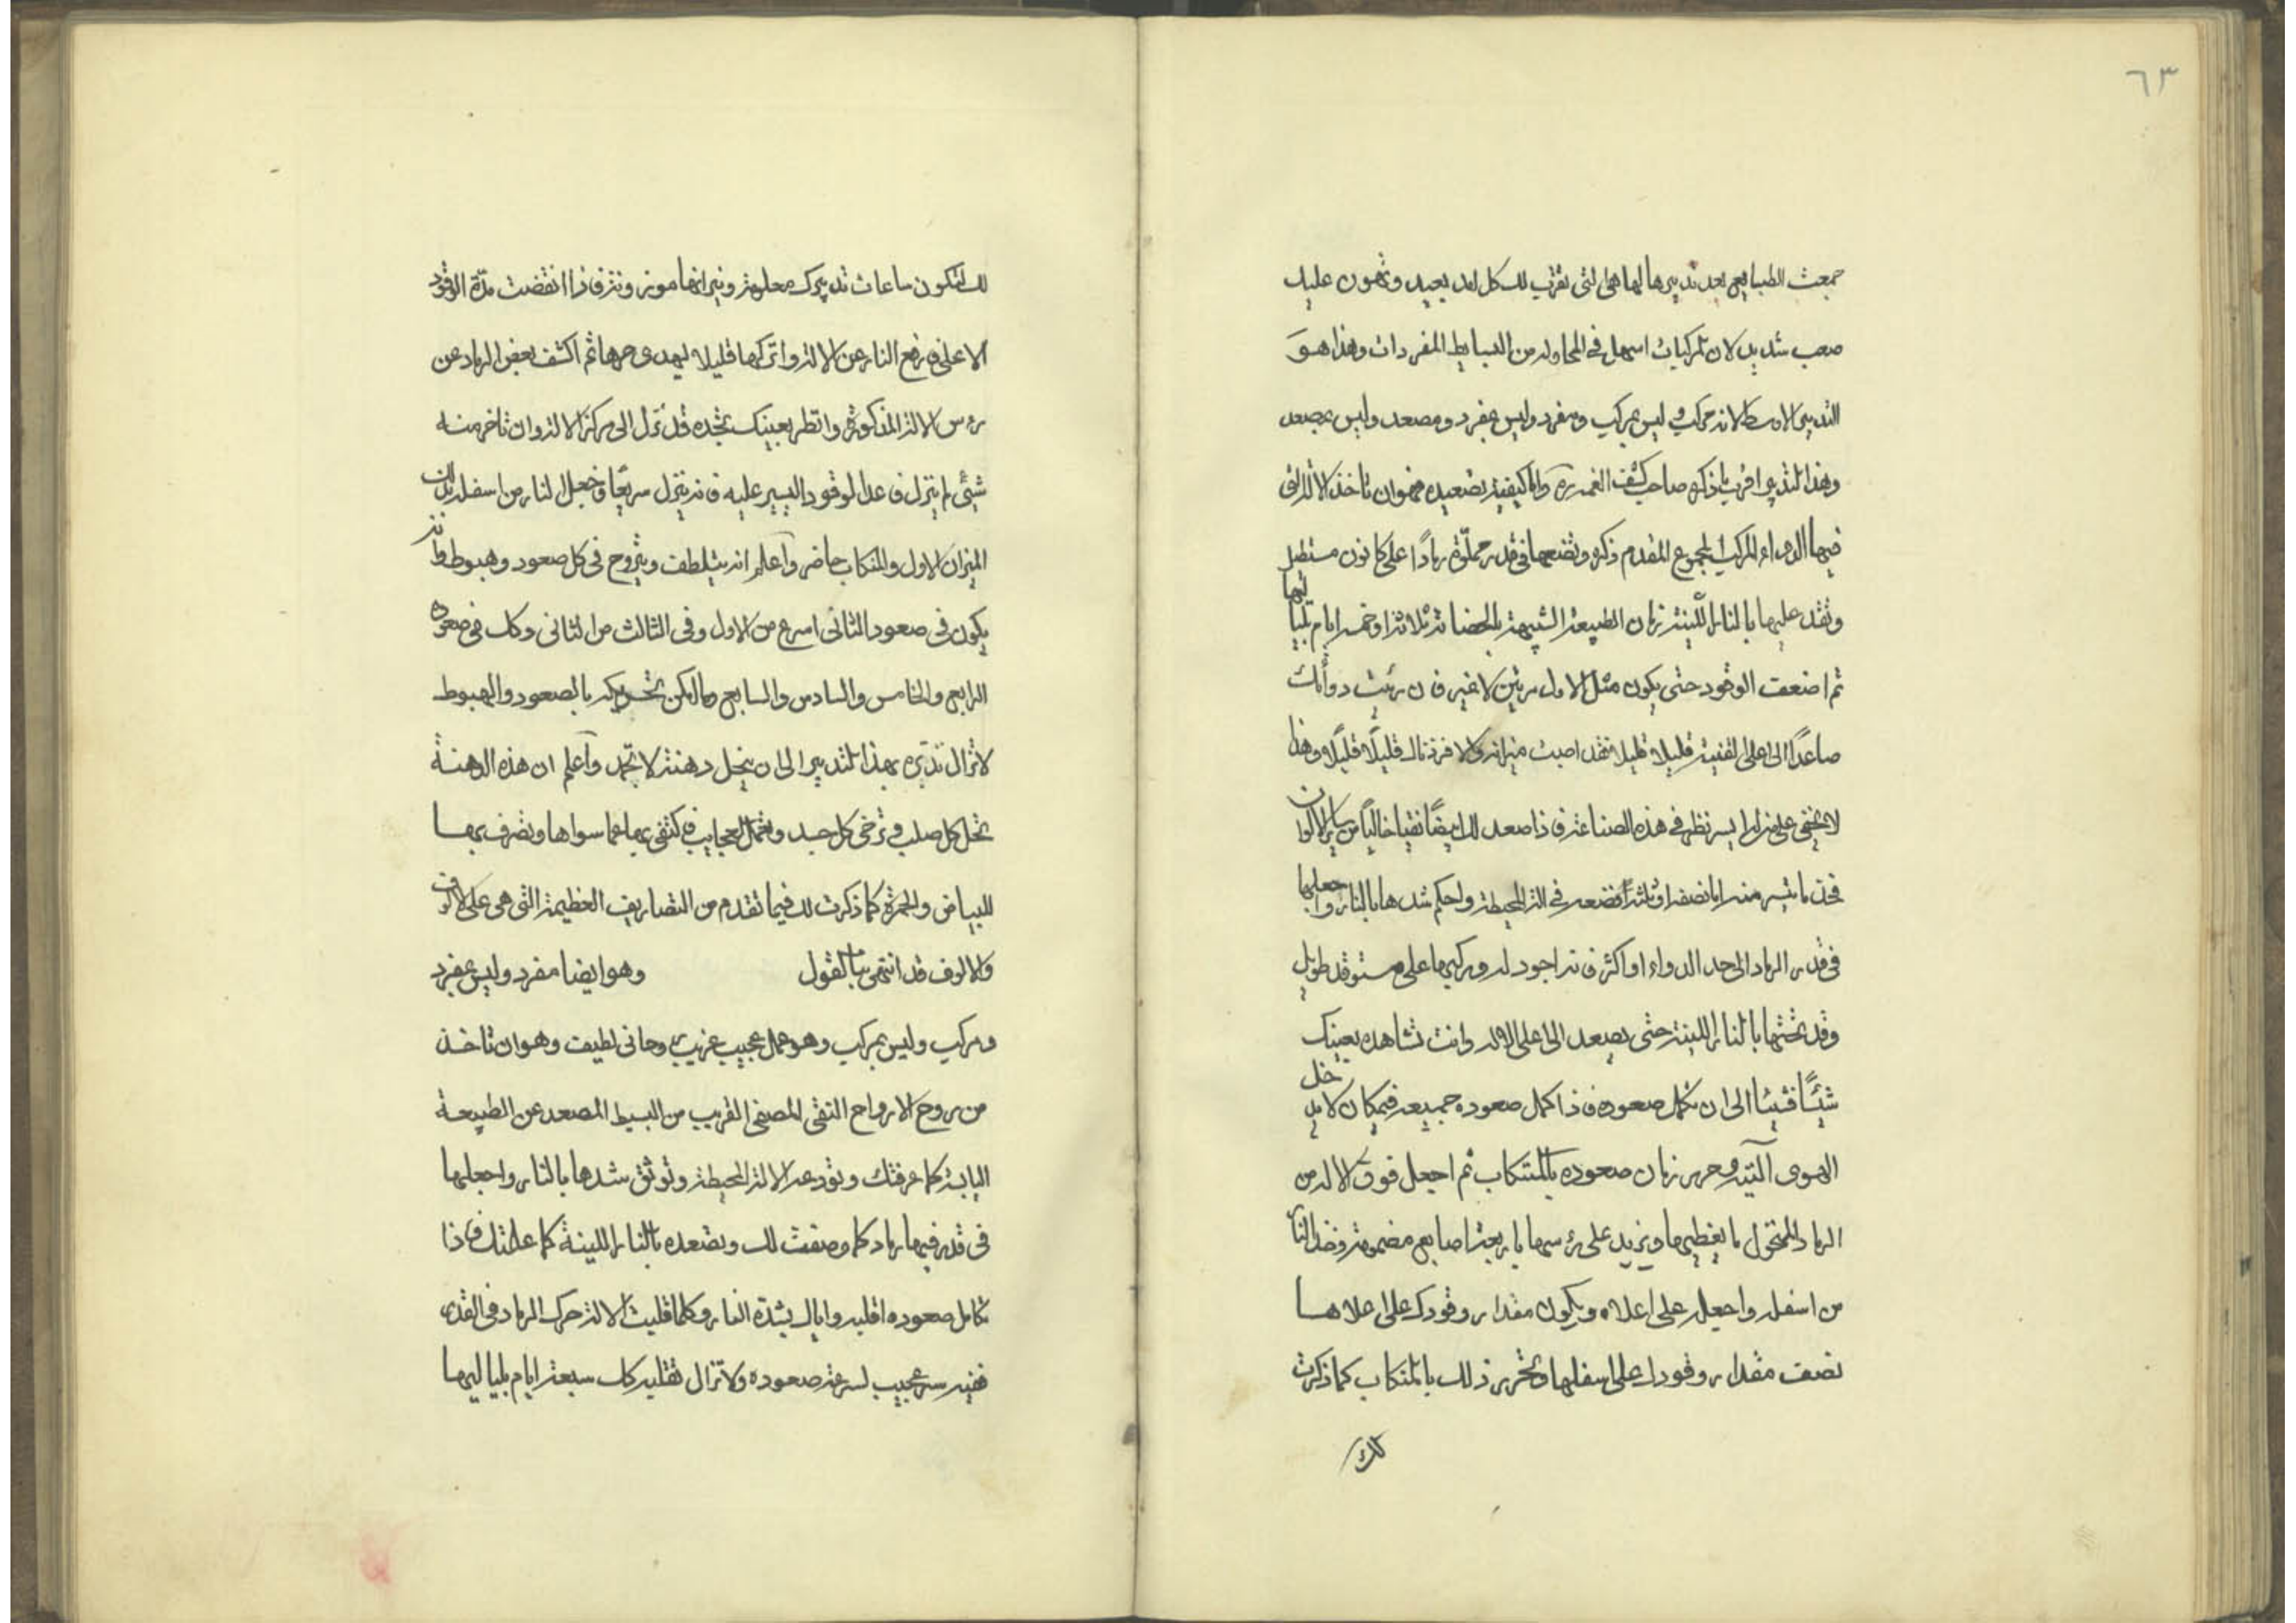 ٦٣
جمعت الطبايع بعد تدبيرها لها هى التى تقرب لك كل امد بعيد وتهون عليك
صعب شديد لان المركبات اسهل فى المحاوله من البسايط المفردات وهذا هو
التدبير الاوسط لانه مركب وليس بمركب ومفرد وليس بمفرد ومصعد وليس بمصعد
وهذا التدبير اقرب ما ذكره صاحب كشف الغمه واما كيفية تصعيده فهو ان تاخذ الالة التى
فيها الدواء المركب المجموع المقدم ذكره وتضعها فى قدر مملوة رمادًا على كانون مستطيل
وتقد عليها بالنار اللينة زمان الطبيعة الشبيهة بالحضانة ثلاثة او خمسة ايام بلياليها
ثم اضعف الوقود حتى يكون مثل الاول مرتين لا غير فان رئيت دوأك
صاعدًا الى اعلى القنينة قليلا قليلا فقد اصبت ميزانه والا فزد ناله قليلًا قليلًا وهذا
لا يخفى على من له ايسر نظر فى هذه الصناعة فاذا صعد لك ابيضًا نقيا خاليًا من ساير الالوان
فخذ ما تيسر منه اما نصفه او ثلثه فضعه فى الة المحيطة واحكم شدها بالنار واجعلها
فى قدر الرماد الى حد الدواء او اكثر فانه اجود له وركبها على مستوقد طويل
وقد تحتها بالنار اللينة حتى يصعد الى اعلى الاله وانت تشاهده بعينك
شيئًا فشيئا الى ان تكمل صعوده فاذا كمل صعوده جميعه فيمكان لا يدخل
الهوى اليته وحرر زمان صعوده بالمنكاب ثم اجعل فوق الاله من
الرماد المنخول ما يغطيها ويزيد على رءسها باربعة اصابع مضمومة وخذ النار
من اسفله واجعله على اعلاه ويكون مقدار وقودك على اعلاها
نصف مقدار وقودك على اسفلها وتحرر ذلك بالمنكاب كما ذكرت
لك
لك لتكون ساعات تدبيرك معلومة ونيرانها موزونة فاذا انقضت مدة الوقود
الاعلى فارفع النار عن الالة واتركها قليلا ليهدى حرها ثم اكشف بعض الرماد عن
رءس الالة المذكورة وانظر بعينك تجده قد نزل الى مركز الالة وان تاخر منه
شيئى لم ينزل فاعد الوقود اليسير عليه فانه ينزل سريعًا فاجعل النار من اسفله بذلك
الميزان الاول والمنكاب حاضر واعلم انه يتلطف ويتروح فى كل صعود وهبوط وانه
يكون فى صعود الثانى اسرع من الاول وفى الثالث من الثانى وكك فى صعوده
الرابع والخامس والسادس والسابع وما امكن تحريكه بالصعود والهبوط
لا تزال تدبره بهذا التدبير الى ان ينحل دهنة لا تجمد واعلم ان هذه الدهنة
تحل كل صلب وترخى كل جسد وتعمل العجايب فاكتفى بها عما سواها وتصرف بها
للبياض والحمرة كما ذكرت لك فيما تقدم من التصاريف العظيمة التى هى على الالوف
والالوف قد انتهى بنا القول وهو ايضا مفرد وليس بمفرد
ومركب وليس بمركب وهو عمل عجيب غريب روحانى لطيف وهو ان تاخذ
من روح الارواح النقى المصفى القريب من البسيط المصعد عن الطبيعة
اليابسة كما عرفتك وتودعه الالة المحيطة وتوثق شدها بالنار واجعلها
فى قدر فيها رماد كما وصفت لك وتصعده بالنار اللينة كما علمتك فاذا
تكامل صعوده اقلبه واياك بشدة النار وكلما قلبت الالة حرك الرماد فى القدر
ففيه سر عجيب لسرعة صعوده ولا تزال تقلبه كك سبعة ايام بلياليها